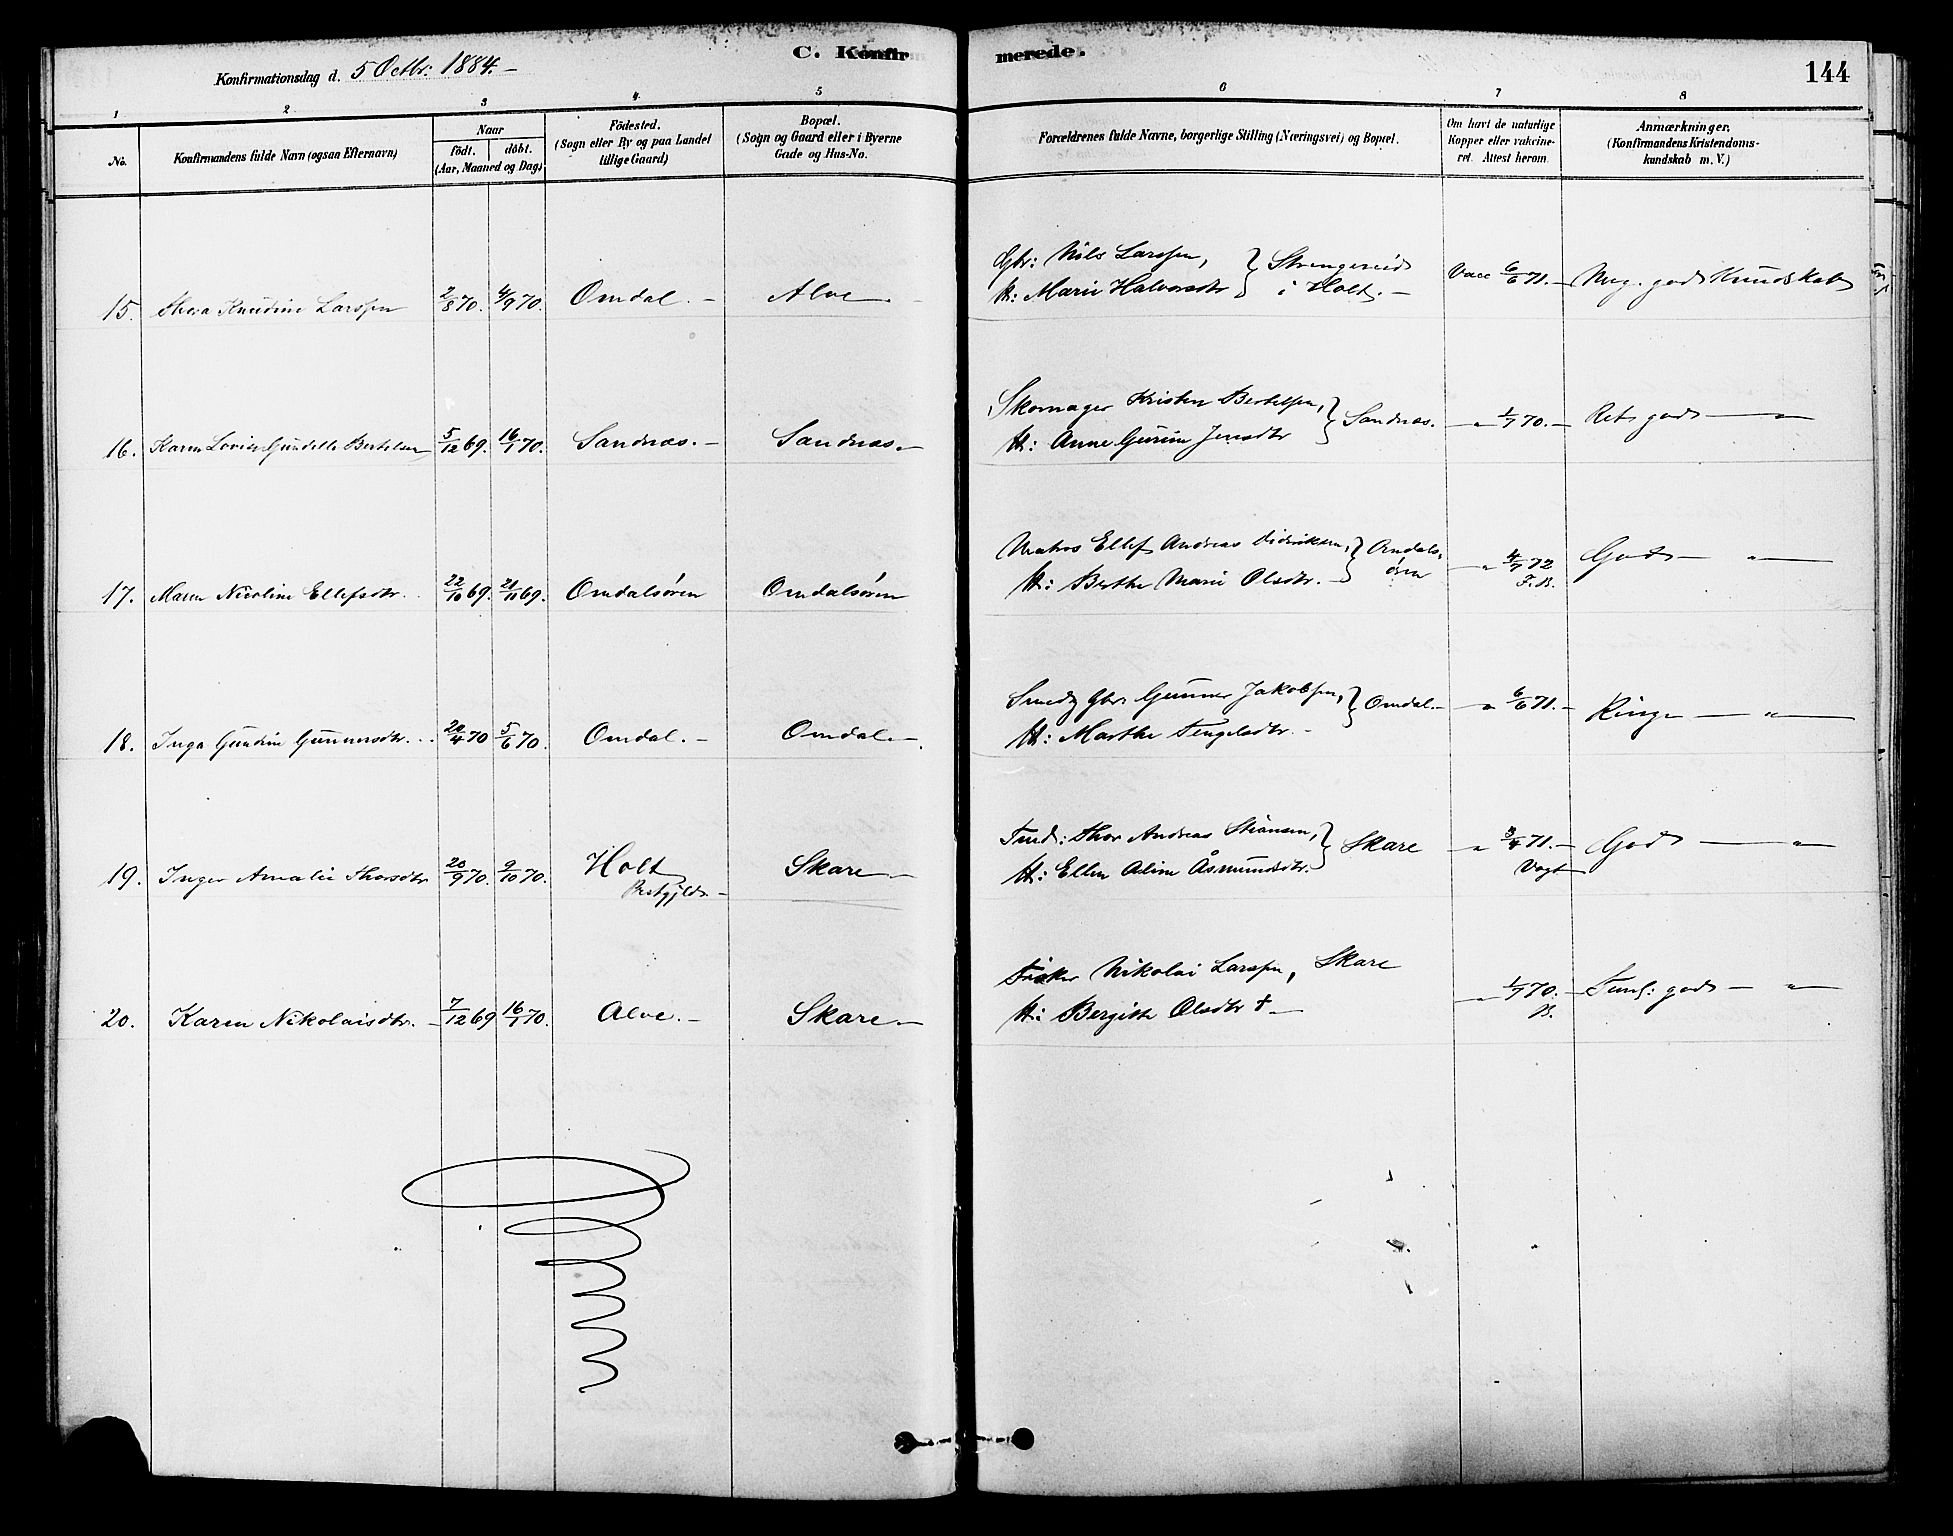 C. Konfirmerede.
144
Konfirmationsdag d. 5 Octbr: 1884.-
1 2 3 4 5 6 7 8
No.
Konfirmandens fulde Navn (ogsaa Efternavn)
Naar
født. døbt.
(Aar, Maaned og Dag)
Födested.
(Sogn eller By og paa Landet
tillige Gaard)
Bopæl.
(Sogn og Gaard eller i Byerne
Gade og Hus-No.
Forældrenes fulde Navne, borgerlige Stilling (Næringsvei) og Bopæl.
Om havt de naturlige
Kopper eller vakcine-
ret. Attest herom.
Anmærkninger.
(Konfirmandens Kristendoms-
kundskab m. V.)
Gbr: Nils Larssen, } Strengereid
H: Marie Halvorsdtr } i Holt.-
15. Thora Knudine Larssen 2/8 70. 4/9 70. Omdal.- Alve - Vacc 6/6 71.- Mg. god Kundskab
Skomager Kristen Bertelsen, } Sandnæs.
H: Anne Gurine Jensdtr
16. Karen Lovise Gundelle Bertelsen 5/12 69. 16/1 70. Sandnæs.- Sandnæs.- - " 1/7 70.- Ret god - "
Matros Ellef Andreas Didriksen, } Omdals-
H: Berthe Marie Olsdtr.- } øren
17. Maren Nicoline Ellefsdtr. 22/10 69. 21/11 69. Omdalsøren Omdalsøren - " 4/7 72 God - "
F. B.
Smed, Gbr. Gunner Jakobsen, } Omdal.-
H: Marthe Tengelsdtr.-
18. Inga Gundine Gunnersdtr. 24/4 70 5/6 70. Omdal.- Omdal.- - " 6/6 71.- Ringe - "
Ind: Thor Andreas Stiansen, } Skare
H: Ellen Aline Åsmundsdtr.
19. Inger Amalie Thorsdtr 20/9 70. 9/10 70. Holt Skare - - " 3/4 71.- God - "
Prstgjld.- Vogt
Fisker Nikolai Larssen, Skare
H: Bergitte Olsdtr † -
20. Karen Nikolaisdtr.- 7/12 69 16/1 70. Alve.- Skare.- - " 1/7 70.- Teml: god - "
B.